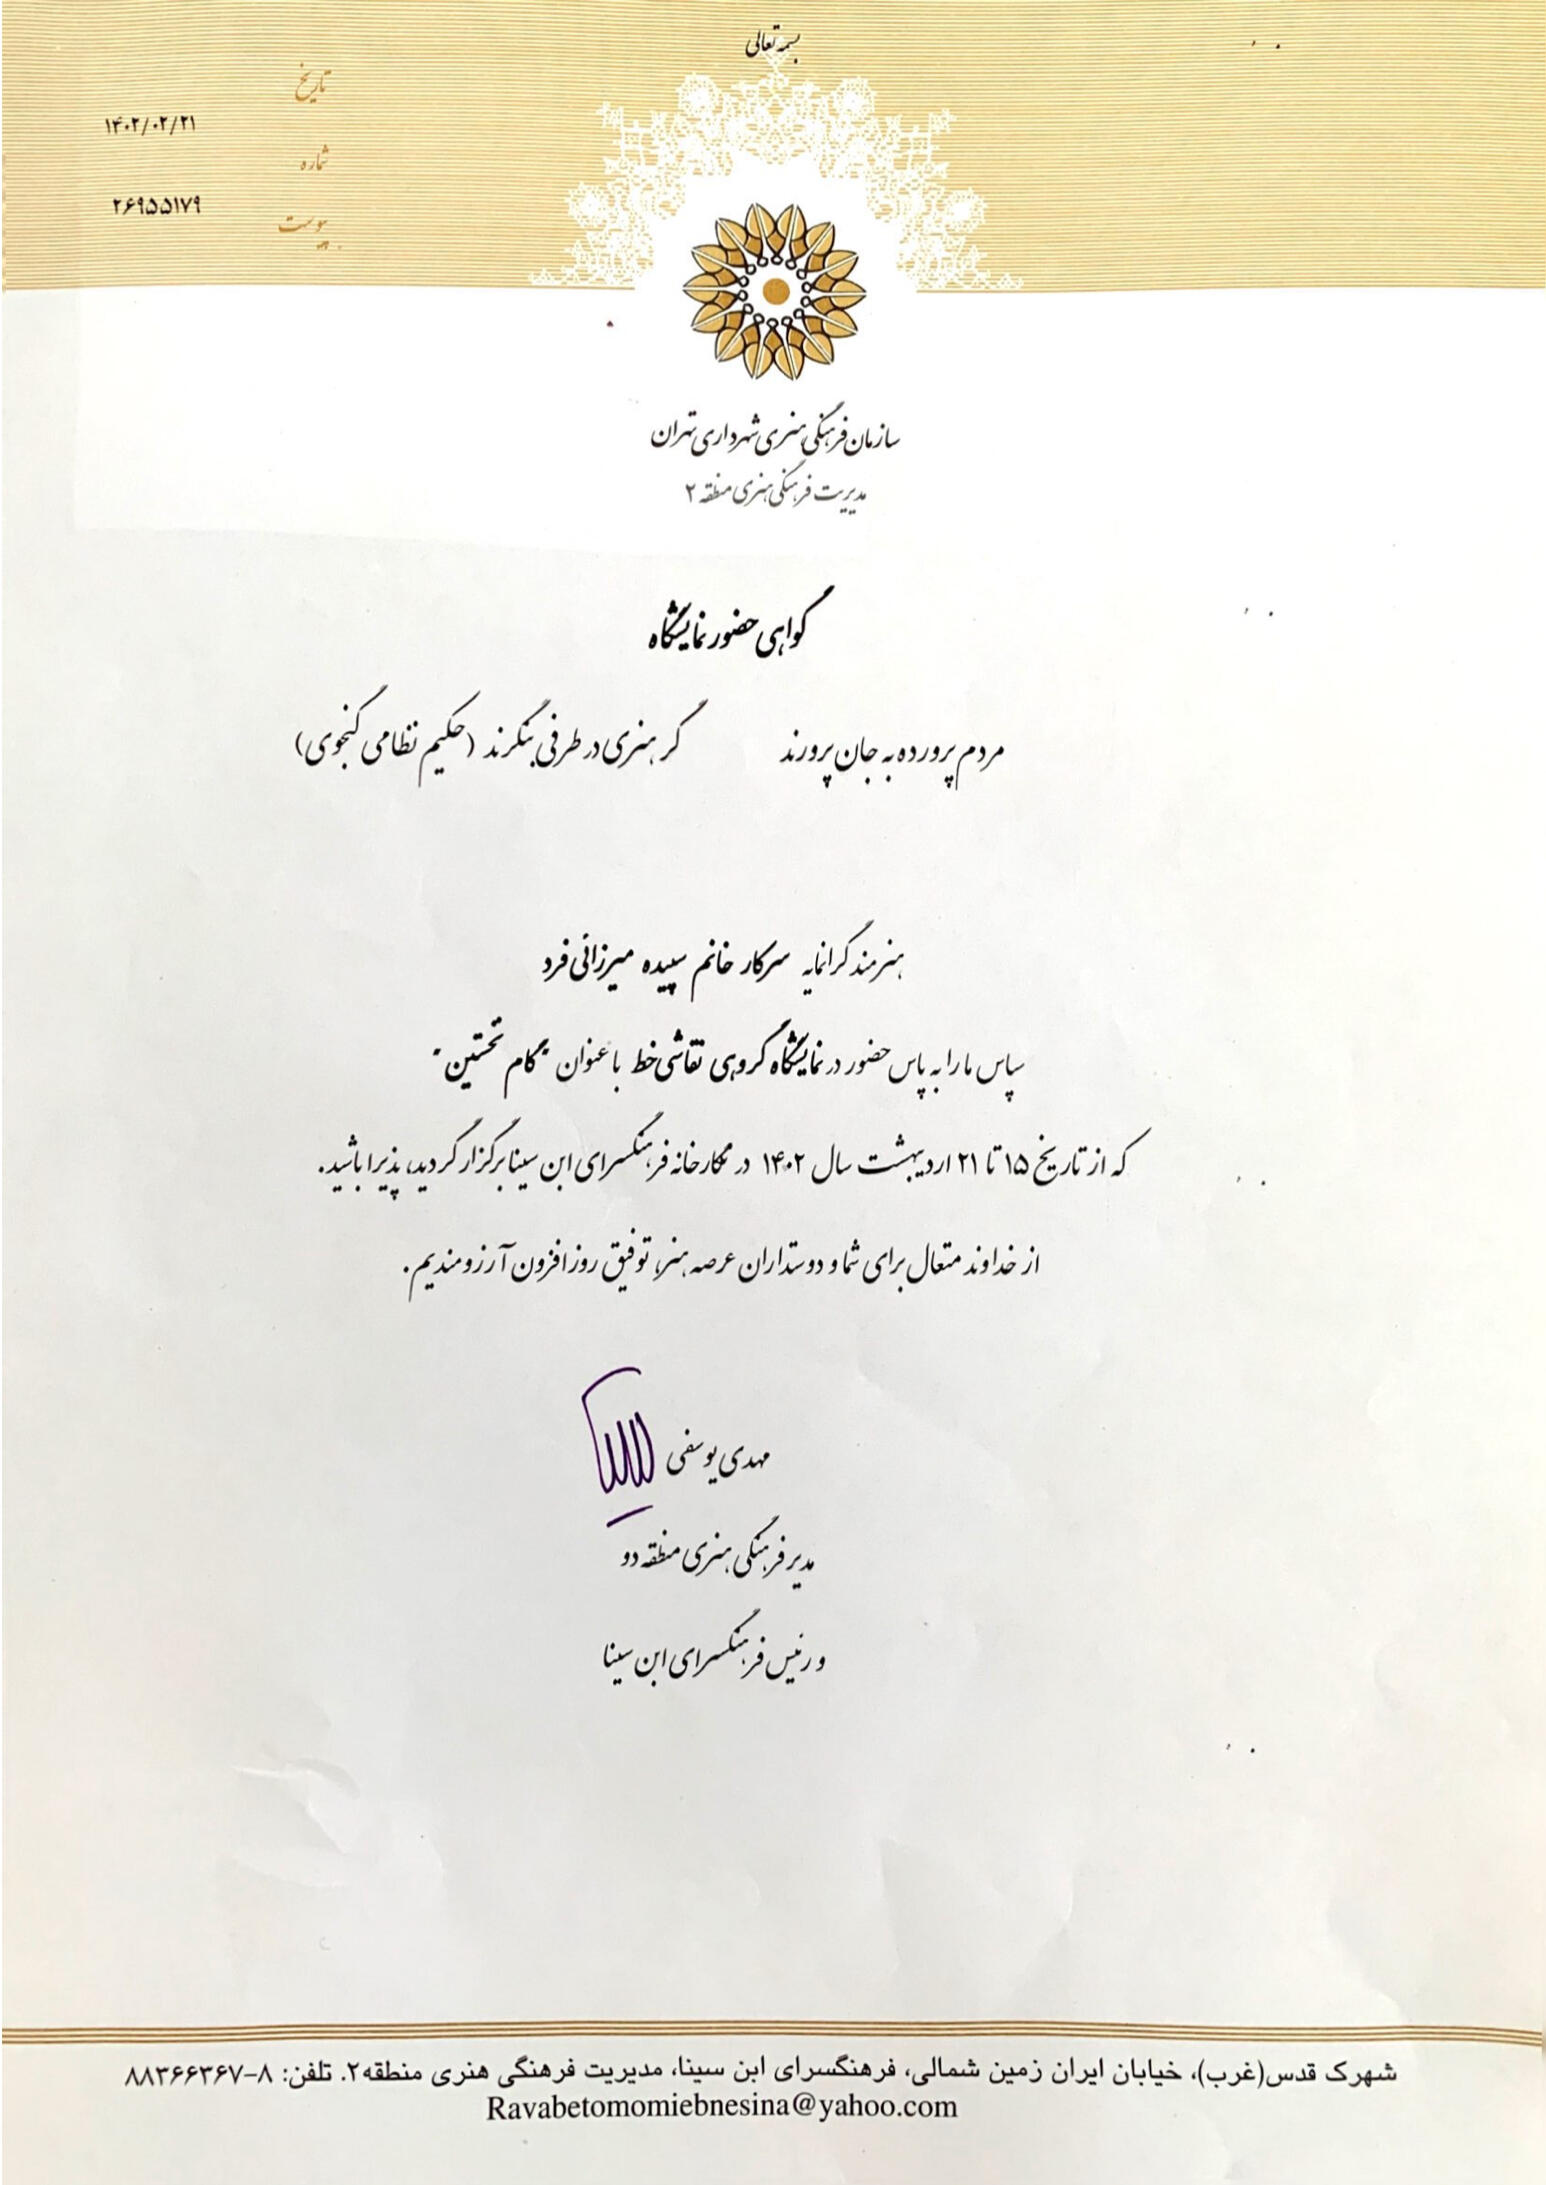 بسمه تعالی
تاریخ
۱۴۰۲/۰۲/۲۱
شماره
۲۶۹۵۵۱۷۹
پیوست
سازمان فرهنگی هنری شهرداری تهران
مدیریت فرهنگی هنری منطقه ۲
گواهی حضور نمایشگاه
مردم پرورده به جان پرورند گر هنری در طرفی بنگرند (حکیم نظامی گنجوی)
هنرمند گرانمایه سرکار خانم سپیده میرزائی فرد
سپاس ما را به پاس حضور در نمایشگاه گروهی نقاشی خط با عنوان "گام نخستین"
که از تاریخ ۱۵ تا ۲۱ اردیبهشت سال ۱۴۰۲ در نگارخانه فرهنگسرای ابن سینا برگزار گردید، پذیرا باشید.
از خداوند متعال برای شما و دوستداران عرصه هنر، توفیق روزافزون آرزومندیم.
مهدی یوسفی
مدیر فرهنگی هنری منطقه دو
و رئیس فرهنگسرای ابن سینا
شهرک قدس(غرب)، خیابان ایران زمین شمالی، فرهنگسرای ابن سینا، مدیریت فرهنگی هنری منطقه۲. تلفن: ۸-۸۸۳۶۶۳۶۷
Ravabetomomiebnesina@yahoo.com